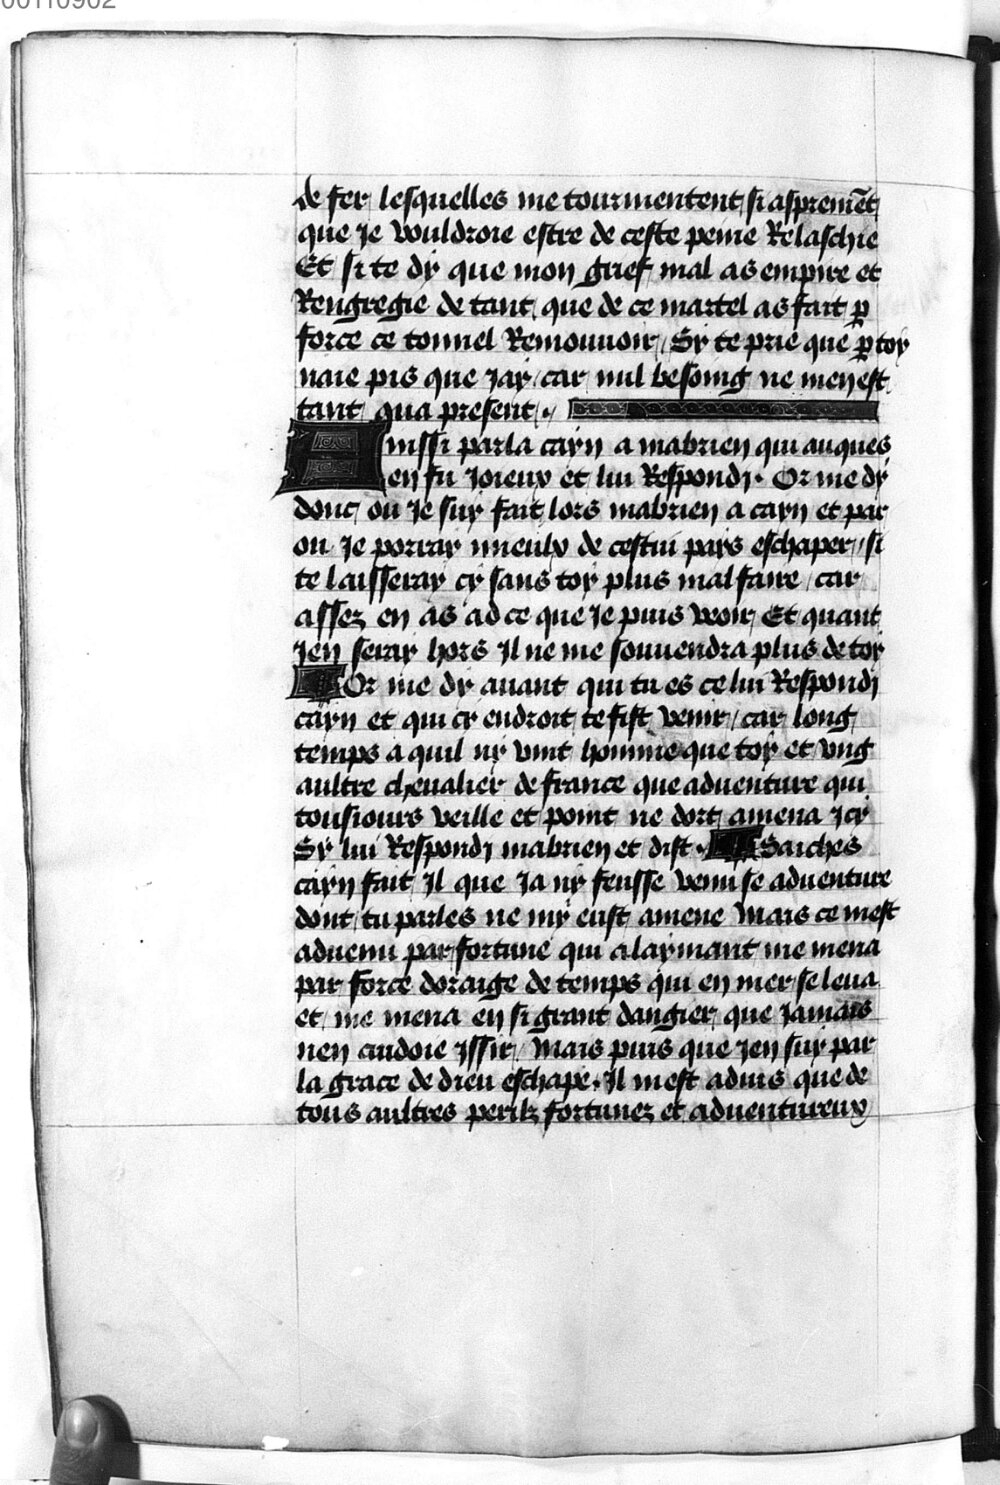 00110902
de fer lesquelles me tourmentent si aspremēt
que Je vouldroie estre de ceste peine Relaschie
Et si te dy que mon grief mal as empire et
Rengregie de tant que de ce martel as fait ꝑ
force ce tonnel Remouuoir / Sy te prie que ꝑ toy
naie pis que Jay / car nul besoing ne men est
tant qua present .
Ainssi parla cayn a mabrien qui auques
en fu Joieux et lui Respondi . Or me dy
donc ou Je suy fait lors mabrien a cayn et par
ou Je porray mieulx de cestui pays eschaper / si
te laisseray cy sans toy plus mal faire / car
assez en as ad ce que Je puis veoir / Et quant
Jen seray hors Il ne me souuendra plus de toy
Or me dy auant qui tu es ce lui Respondi
cayn et qui cy endroit te fist venir / car long
temps a quil ny vint homme que toy et vng
aultre cheualier de france que aduenture qui
tousiours veille et point ne dort amena Icy
Sy lui Respondi mabrien et dist . Saiches
cayn fait Il que Ja ny feusse venu se aduenture
dont tu parles ne my eust amene Mais ce mest
aduenu par fortune qui a laymant me mena
par force doraige de temps qui en mer se leua
et me mena en si grant dangier que Jamais
nen cuidoie Issir / Mais puis que Jen suy par
la grace de dieu eschape . Il mest aduis que de
tous aultres perilz fortunez et aduentureux